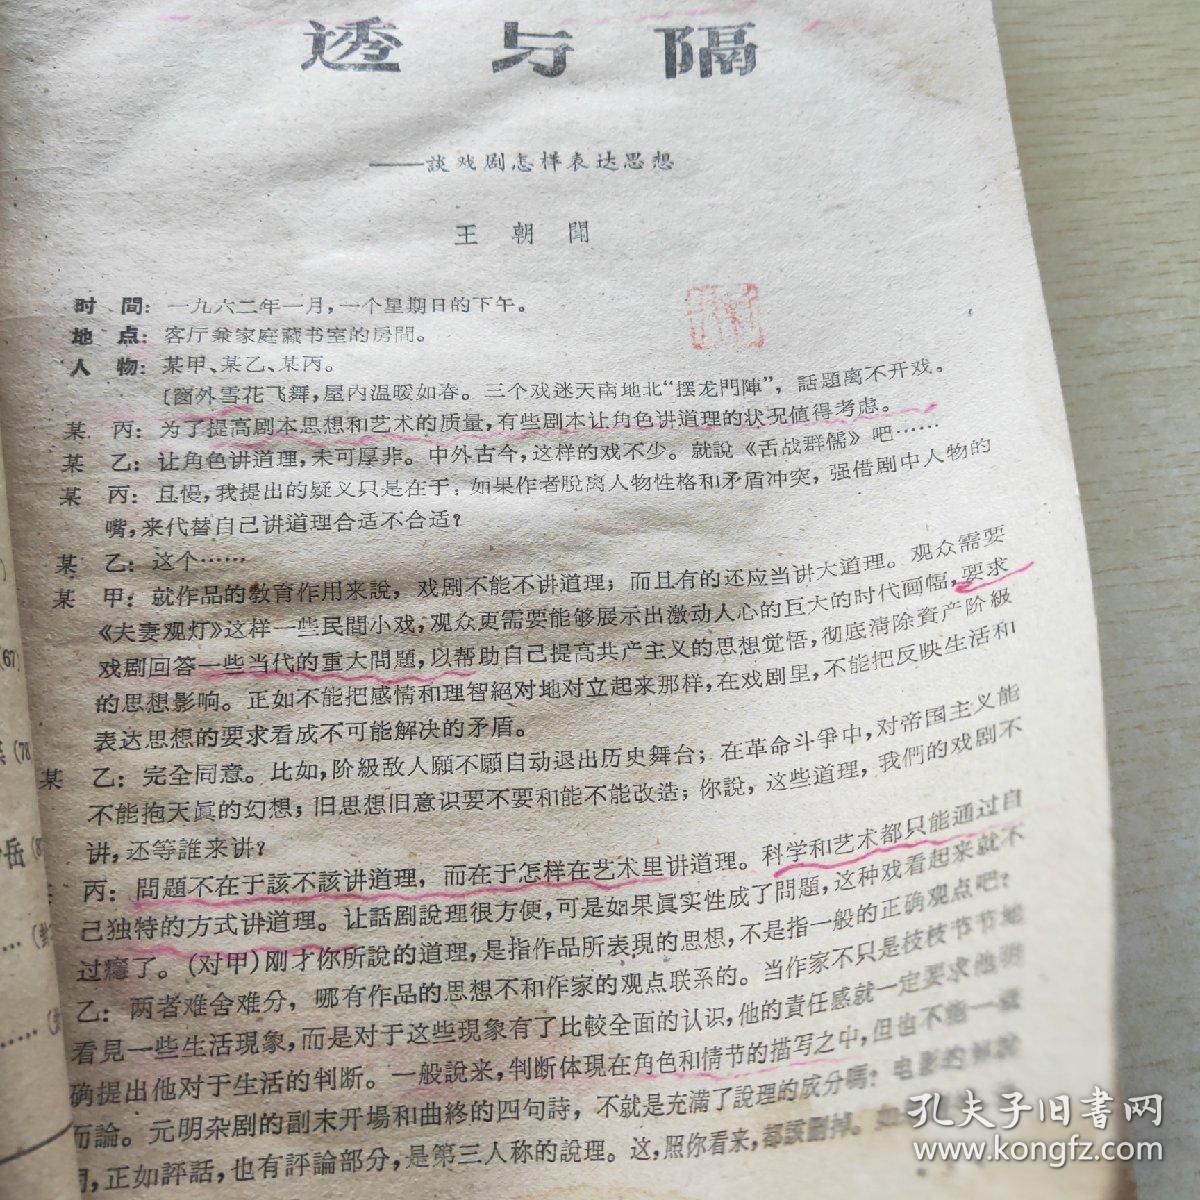 透与隔
——談戏剧怎样表达思想
王朝聞
时間：一九六二年一月，一个星期日的下午。
地点：客厅兼家庭藏书室的房間。
人物：某甲、某乙、某丙。
〔窗外雪花飞舞，屋内温暖如春。三个戏迷天南地北“摆龙門陣”，話題离不开戏。
某丙：为了提高剧本思想和艺术的质量，有些剧本让角色讲道理的状况值得考虑。
某乙：让角色讲道理，未可厚非。中外古今，这样的戏不少。就說《舌战群儒》吧……
某丙：且慢，我提出的疑义只是在于：如果作者脫离人物性格和矛盾冲突，强借剧中人物的
嘴，来代替自己讲道理合适不合适？
某乙：这个……
某甲：就作品的教育作用来說，戏剧不能不讲道理；而且有的还应当讲大道理。观众需要
《夫妻观灯》这样一些民間小戏，观众更需要能够展示出激动人心的巨大的时代画幅，要求
戏剧回答一些当代的重大問題，以帮助自己提高共产主义的思想觉悟，彻底清除資产阶級
的思想影响。正如不能把感情和理智絕对地对立起来那样，在戏剧里，不能把反映生活和
表达思想的要求看成不可能解决的矛盾。
某乙：完全同意。比如，阶級敌人願不願自动退出历史舞台；在革命斗爭中，对帝国主义能
不能抱天眞的幻想；旧思想旧意识要不要和能不能改造；你說，这些道理，我們的戏剧不
讲，还等誰来讲？
丙：問題不在于該不該讲道理，而在于怎样在艺术里讲道理。科学和艺术都只能通过自
己独特的方式讲道理。让話剧說理很方便，可是如果眞实性成了問題，这种戏看起来就不
过癮了。(对甲)刚才你所說的道理，是指作品所表現的思想，不是指一般的正确观点吧？
乙：两者难舍难分，哪有作品的思想不和作家的观点联系的。当作家不只是枝枝节节地
看見一些生活現象，而是对于这些現象有了比較全面的认识，他的責任感就一定要求他明
确提出他对于生活的判断。一般說来，判断体現在角色和情节的描写之中，但也不能一概
而論。元明杂剧的副末开場和曲終的四句詩，不就是充滿了說理的成分嗎？电影的解說
詞，正如評話，也有評論部分，是第三人称的說理。这，照你看来，都該删掉。如
(67)
(78
岳
孔夫子旧书网
www.kongfz.com